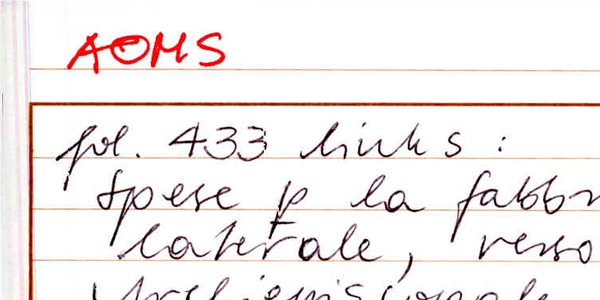 AOMS
fol. 433 links:
Spese p la fabbr
laterale, verso